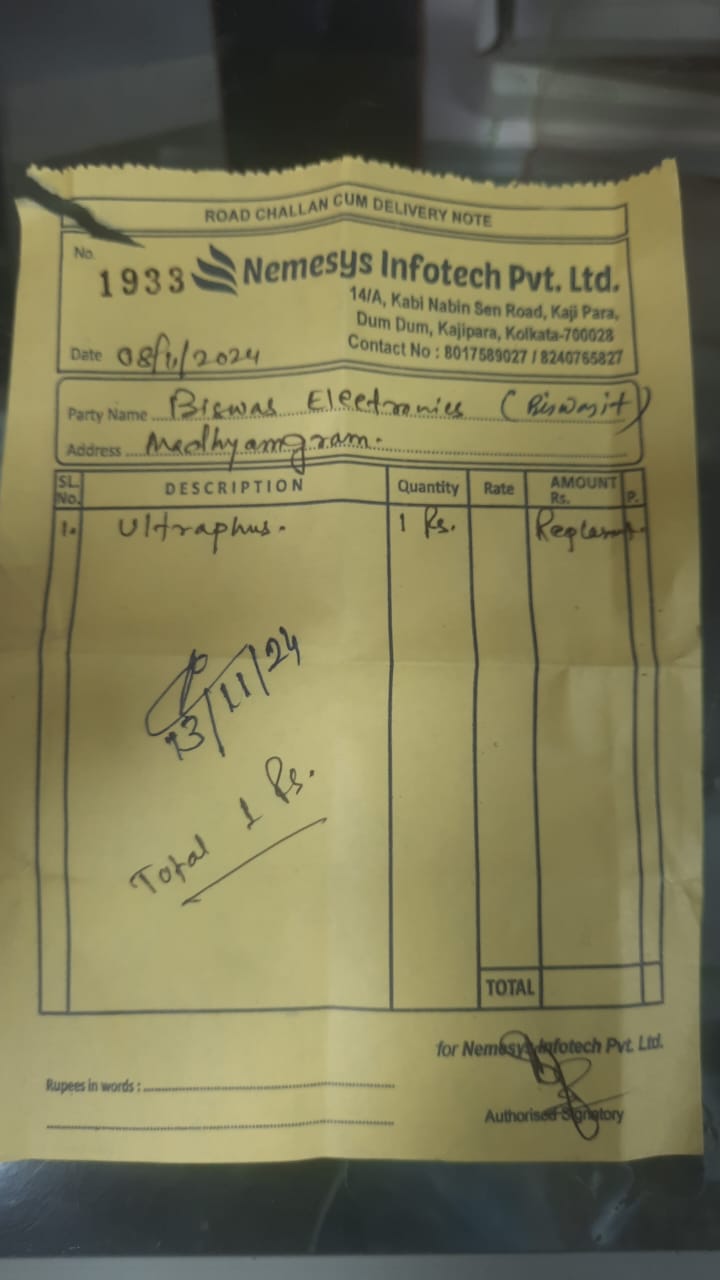 ROAD CHALLAN CUM DELIVERY NOTE
No. 1933 Nemesys Infotech Pvt. Ltd.
14/A, Kabi Nabin Sen Road, Kaji Para,
Dum Dum, Kajipara, Kolkata-700028
Contact No : 8017589027 / 8240765827
Date 08/11/2024
Party Name Biswas Electronics (Biswasit)
Address Madhyamgram.
SL. No. DESCRIPTION Quantity Rate AMOUNT Rs. P.
1. Ultraphus. 1 Ps.
13/11/24
Total 1 Ps.
TOTAL
for Nemesys Infotech Pvt. Ltd.
Rupees in words :
Authorised Signatory